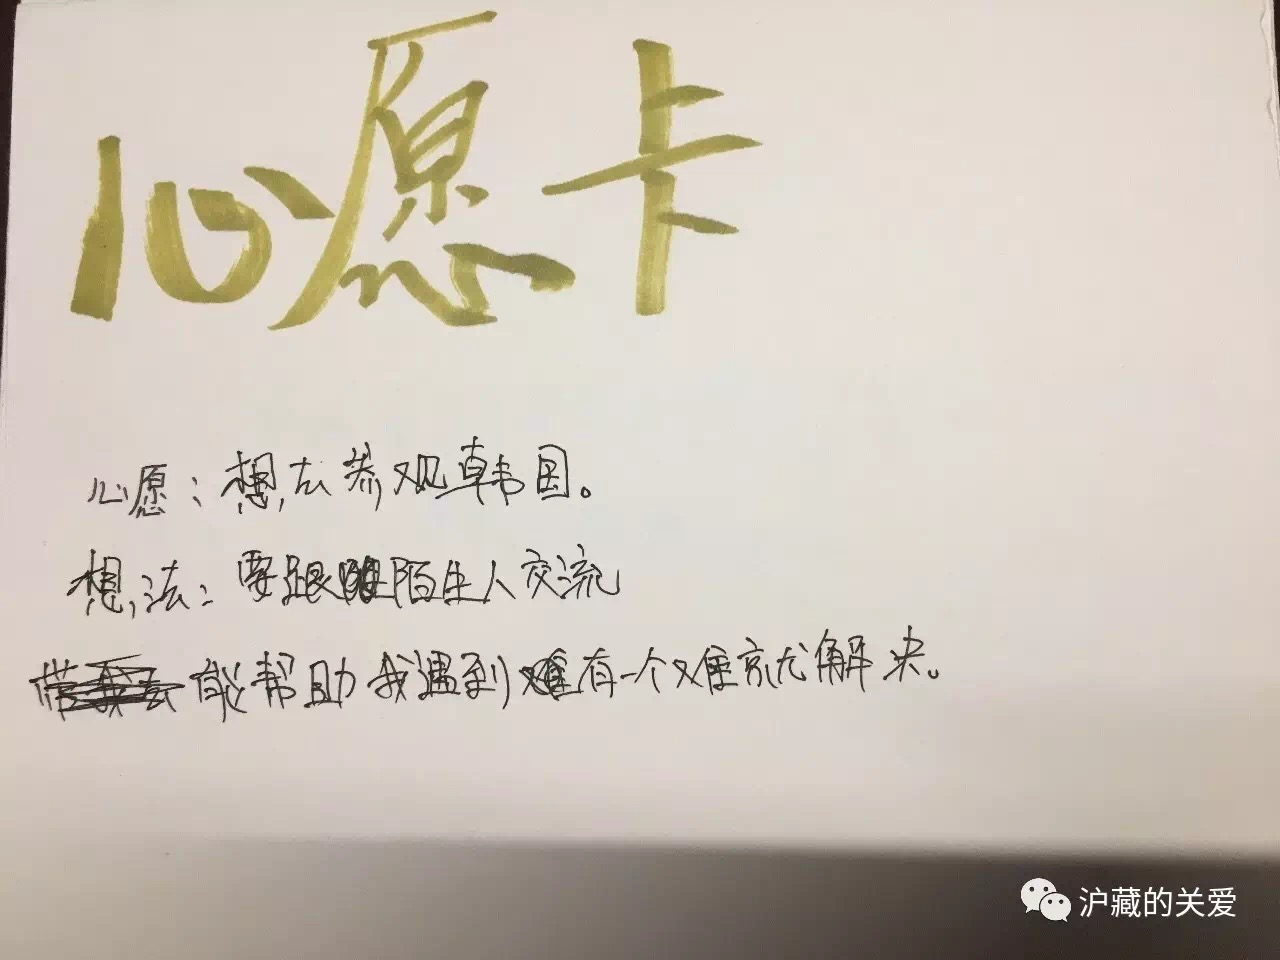 心愿卡
心愿：想去参观韩国。
想法：要跟陌生人交流
能帮助我遇到难有一个难就解决。
沪藏的关爱